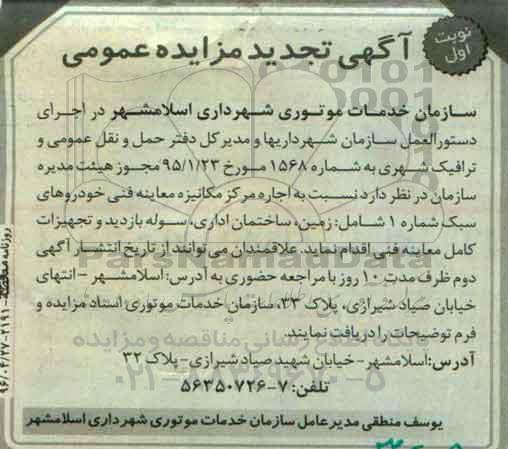 نوبت اول
آگهی تجدید مزایده عمومی
سازمان خدمات موتوری شهرداری اسلامشهر در اجرای
دستورالعمل سازمان شهرداریها و مدیر کل دفتر حمل و نقل عمومی و
ترافیک شهری به شماره ۱۵۶۸ مورخ ۹۵/۱/۲۳ مجوز هیئت مدیره
سازمان در نظر دارد نسبت به اجاره مرکز مکانیزه معاینه فنی خودروهای
سبک شماره ۱ شامل: زمین، ساختمان اداری، سوله بازدید و تجهیزات
کامل معاینه فنی اقدام نماید. علاقمندان می توانند از تاریخ انتشار آگهی
دوم ظرف مدت ۱۰ روز با مراجعه حضوری به آدرس: اسلامشهر - انتهای
خیابان صیاد شیرازی، پلاک ۳۳، سازمان خدمات موتوری اسناد مزایده و
فرم توضیحات را دریافت نمایند.
آدرس: اسلامشهر - خیابان شهید صیاد شیرازی - پلاک ۳۲
تلفن: ۷-۵۶۳۵۰۷۲۶
یوسف منطقی مدیر عامل سازمان خدمات موتوری شهرداری اسلامشهر
ParsNamadData
پایگاه اطلاع رسانی مناقصه و مزایده
۰۲۱-۸۸۳۴۹۶۷۰-۵
روزنامه
۹۶/۰۴/۲۷-۲۱۹۱